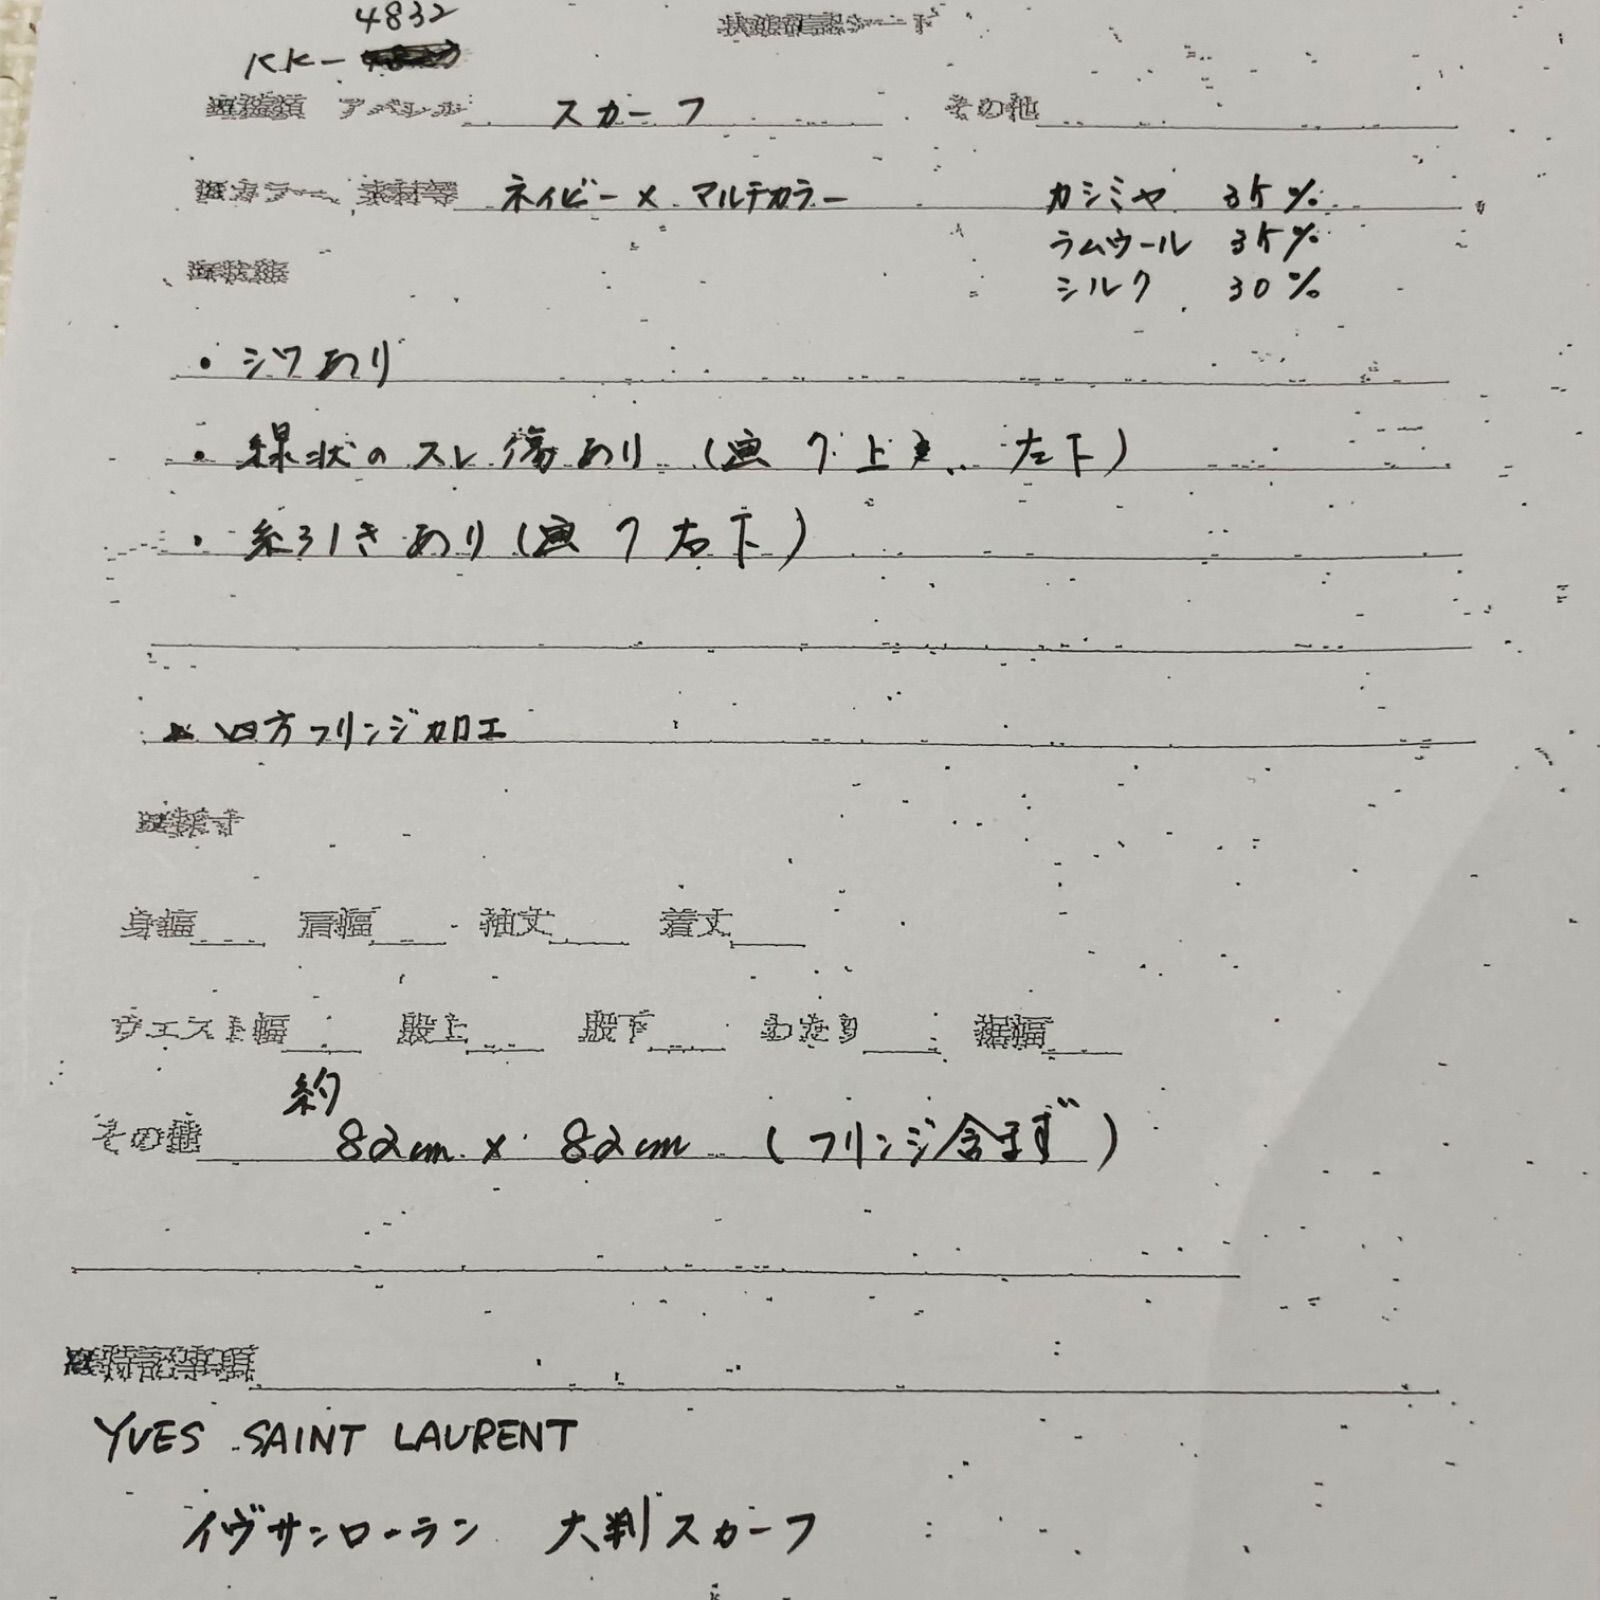 4832
KK-
状態確認シート
アパレル スカーフ その他
カラー、素材等 ネイビー × マルチカラー カシミヤ 35%
ラムウール 35%
シルク 30%
状態
・シワあり
・線状のスレ傷あり (画7上 左下)
・糸引きあり (画7右下)
四方フリンジ加工
採寸
身幅 肩幅 袖丈 着丈
ウエスト幅 股上 股下 わたり 裾幅
約
その他 82cm × 82cm (フリンジ含まず)
特記事項
YVES SAINT LAURENT
イヴサンローラン 大判スカーフ